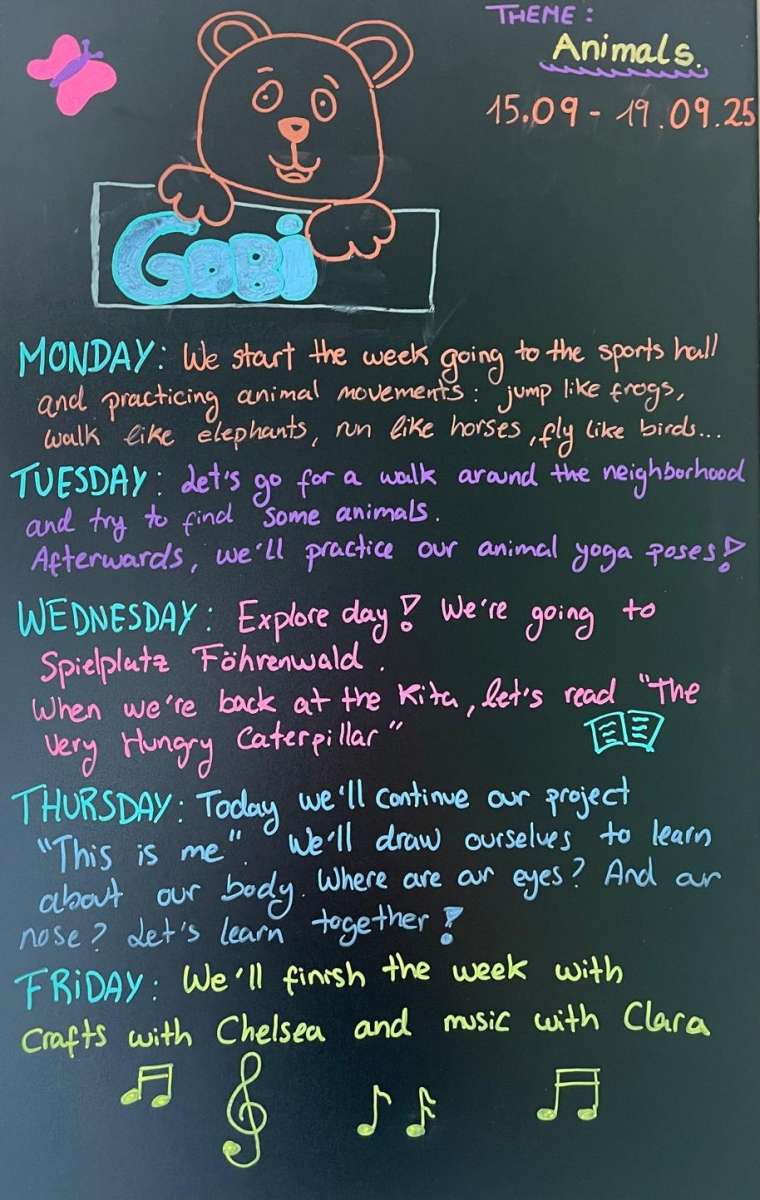 THEME:
Animals.
15.09 - 19.09.25
GOBi
MONDAY: We start the week going to the sports hall
and practicing animal movements: jump like frogs,
walk like elephants, run like horses, fly like birds...
TUESDAY: Let's go for a walk around the neighborhood
and try to find some animals.
Afterwards, we'll practice our animal yoga poses!
WEDNESDAY: Explore day! We're going to
Spielplatz Föhrenwald.
When we're back at the Kita, let's read "The
Very Hungry Caterpillar"
THURSDAY: Today we'll continue our project
"This is me". We'll draw ourselves to learn
about our body. Where are our eyes? And our
nose? Let's learn together!
FRiDAY: We'll finish the week with
crafts with Chelsea and music with Clara